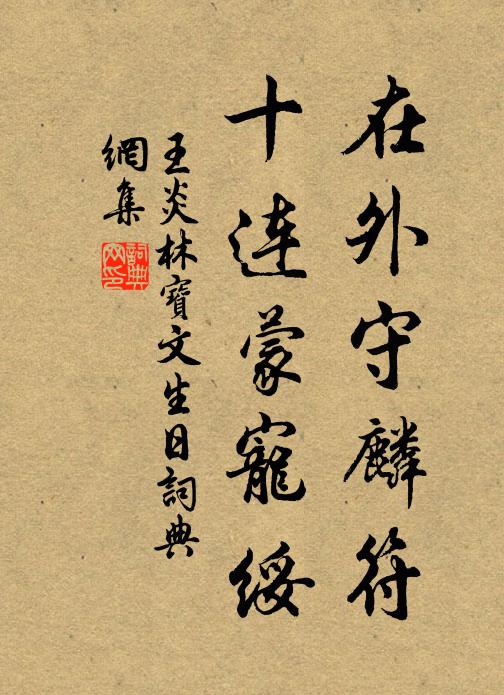 在外守麟符
十连蒙寵綬
王炎林寶文生日詞典
網集
詞典網印